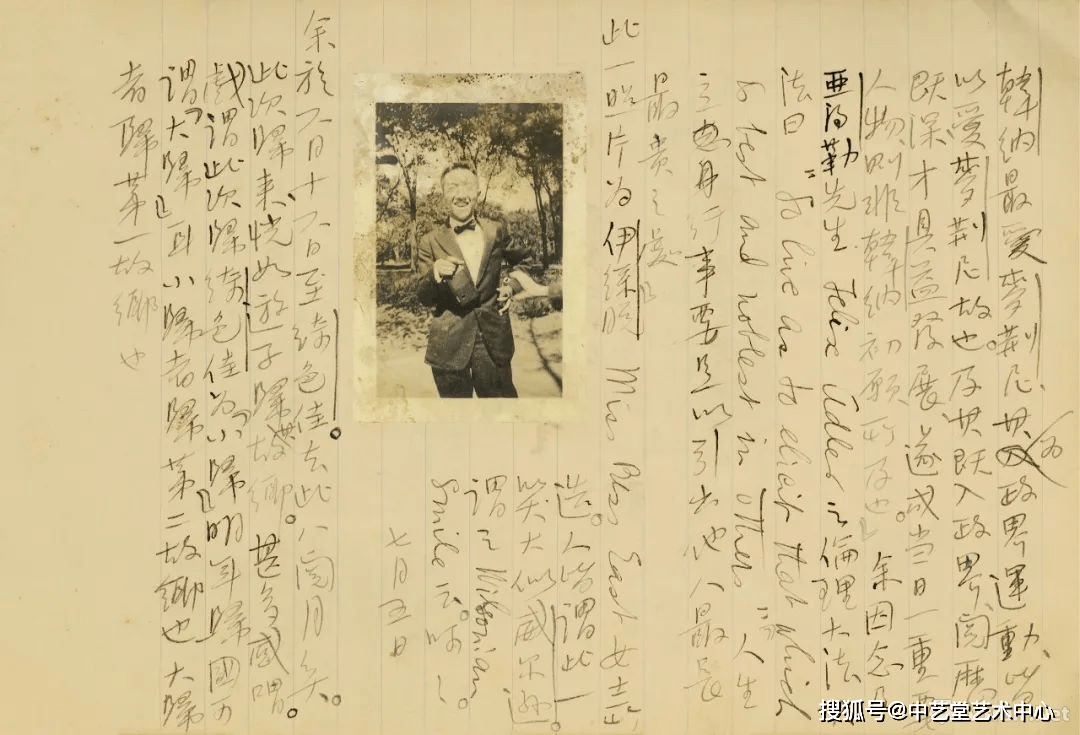 韓納最愛麥荆尼，其為政界運動，皆
以愛麥荆尼故也。及其既入政界，閱歷
既深，才具益發展，遂成當日一重要
人物，則非韓納初願所及也。」余因念及
亞得勒先生 Felix Adler 之倫理大法
法曰 "So live as to elicit that which
is best and noblest in others" 人生
立身行事要足以引出他人最長
最貴之處」
此一照片为伊 Miss Bess East 女士所
造。人皆謂此一
笑大似威尔逊。
謂之Wilsonian
smile 云。
七月五日
余於六月十六日至綺色佳。去此八閱月矣。
此次歸來，恍如遊子歸其故鄉。甚多感喟。
戲謂此次歸綺色佳為「小歸」，明年歸國乃
謂「大歸」耳。小歸者歸第二故鄉也。大歸
者歸第一故鄉也
搜狐号@中艺堂艺术中心